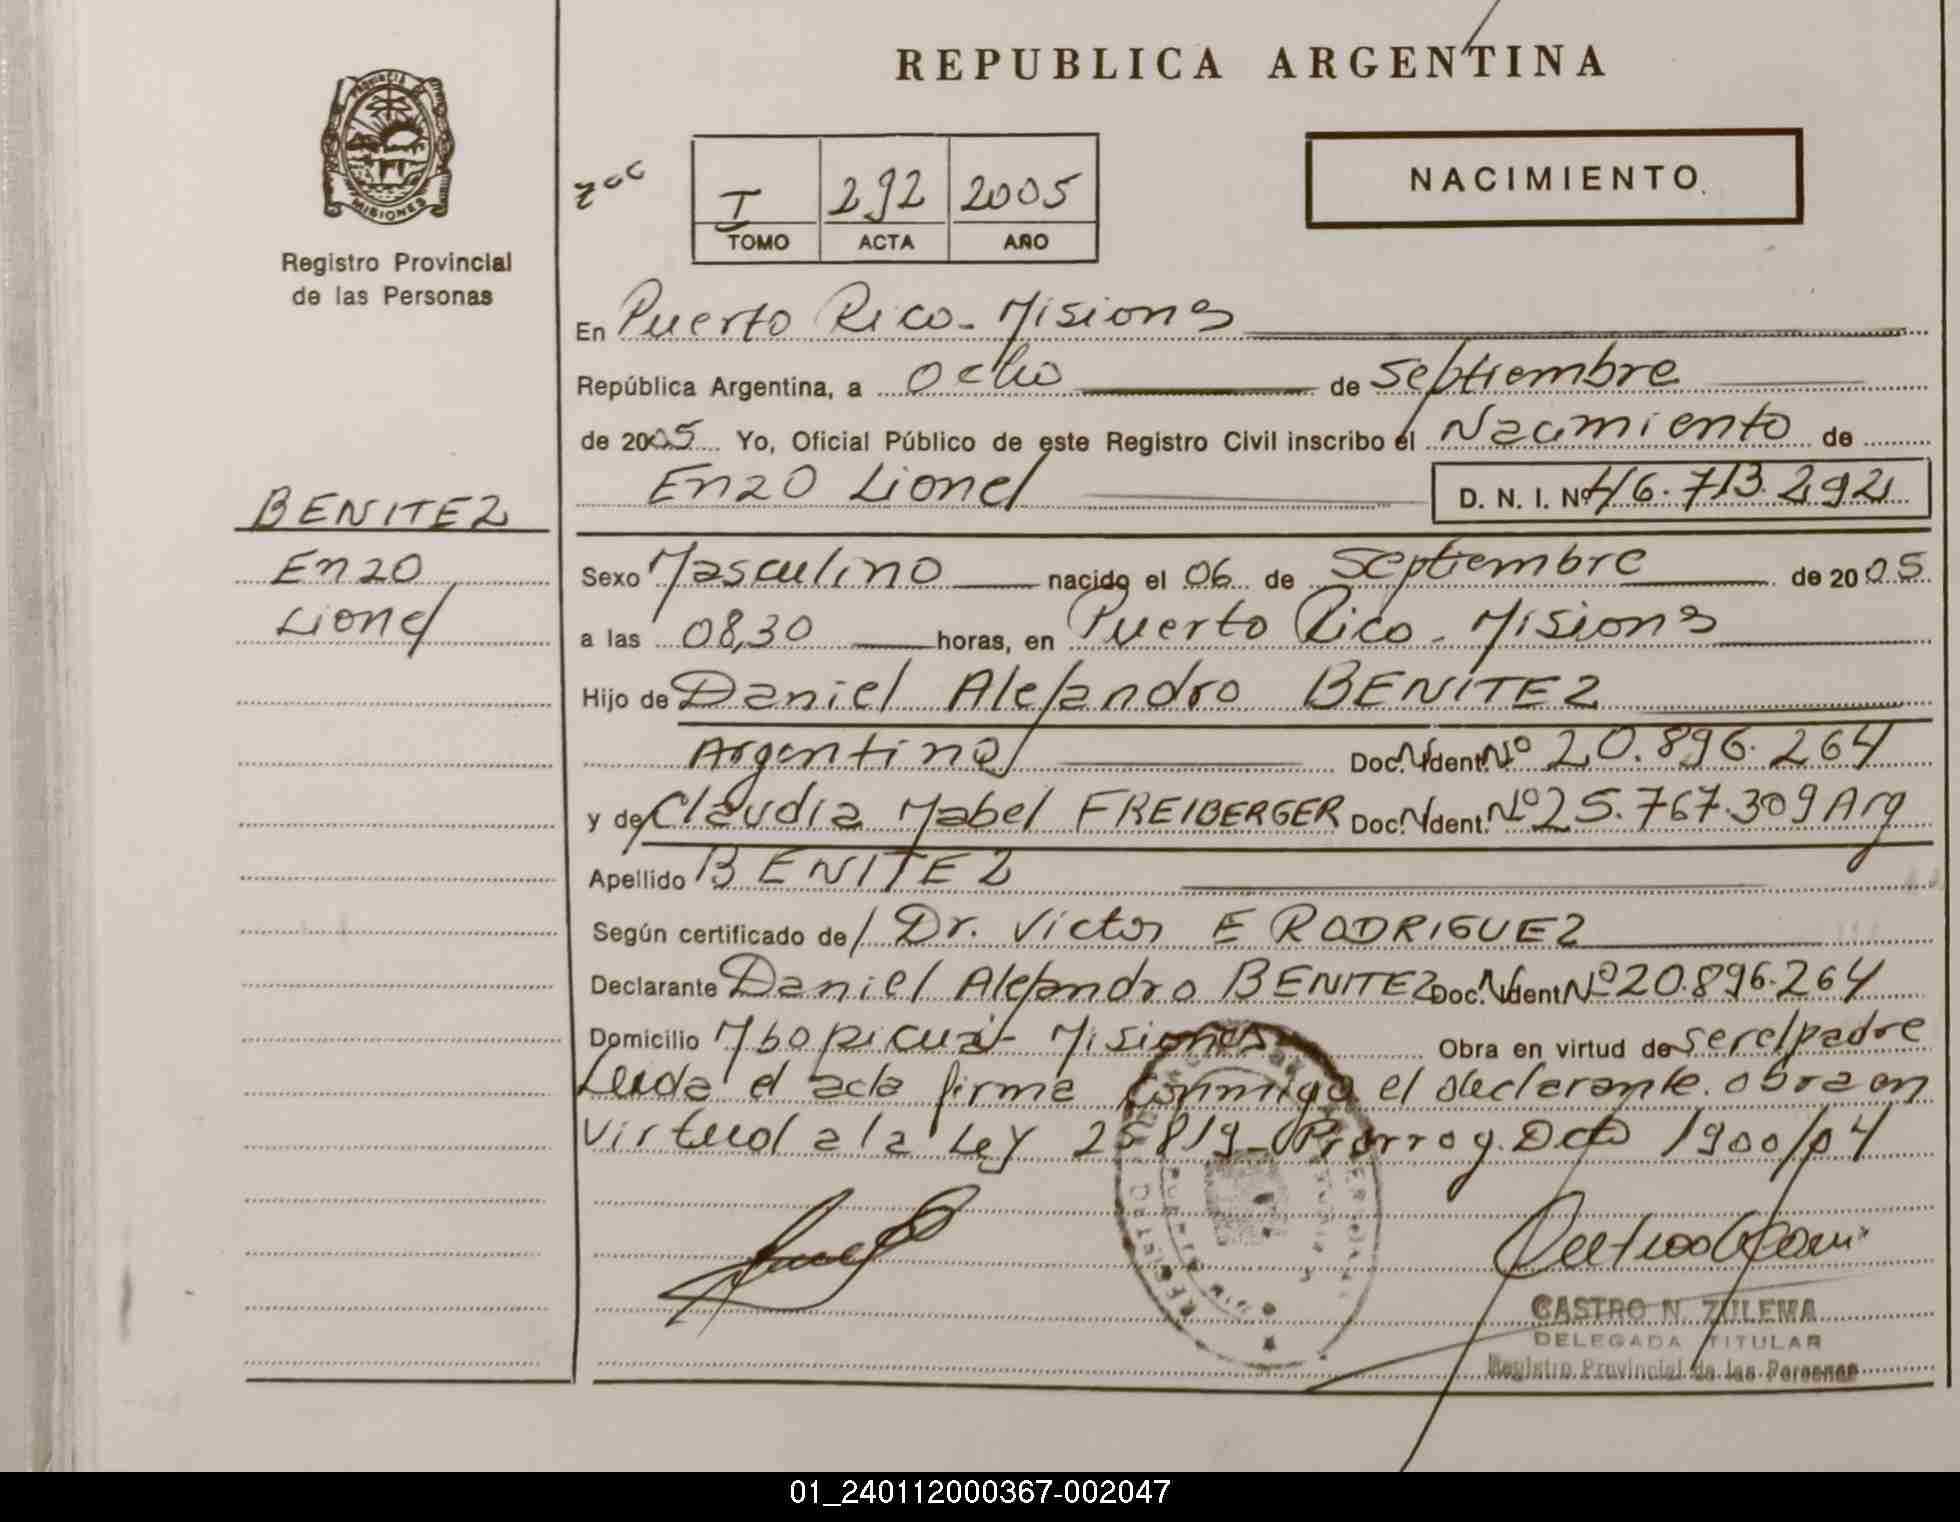 REPUBLICA ARGENTINA
MISIONES
Registro Provincial
de las Personas
200
I 292 2005
TOMO ACTA AÑO
NACIMIENTO
En Puerto Rico - Misiones
República Argentina, a Ocho de Septiembre
de 2005 Yo, Oficial Público de este Registro Civil inscribo el Nacimiento de
Enzo Lionel D. N. I. Nº 46.713.292
BENITEZ
Enzo
Lionel
Sexo Masculino nacido el 06 de Septiembre de 2005
a las 08,30 horas, en Puerto Rico - Misiones
Hijo de Daniel Alejandro BENITEZ
Argentino Doc. N Ident. Nº 20.896.264
y de Claudia Mabel FREIBERGER Doc. N Ident. Nº 25.767.309 Arg
Apellido BENITEZ
Según certificado de Dr. Victor E RODRIGUEZ
Declarante Daniel Alejandro BENITEZ Doc. N Ident Nº 20.896.264
Domicilio Mbopicuá - Misiones Obra en virtud de ser el padre
Leida el acta firma conmigo el declarante. obra en
virtud a la Ley 25819 - Prorrog. Dcto 1900/04
CASTRO N. ZULEMA
DELEGADA TITULAR
Registro Provincial de las Personas
01_240112000367-002047